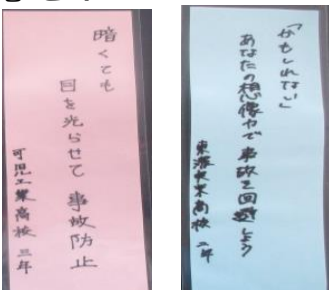 暗くても
目を光らせて 事故防止
可児工業高校 三年
「かもしれない」
あなたの想像力で 事故を回避しよう
東濃実業高校 二年